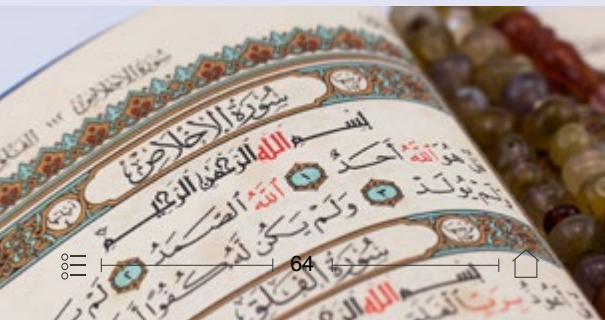 سُورَةُ الإِخْلَاصِ
سُورَةُ الْإِخْلَاصِ
بِسْمِ اللَّهِ الرَّحْمَٰنِ الرَّحِيمِ
قُلْ هُوَ اللَّهُ أَحَدٌ ١ اللَّهُ الصَّمَدُ ٢ لَمْ
وَلَمْ يُولَدْ ٣ وَلَمْ يَكُن لَّهُ كُفُوًا
سُورَةُ الْفَلَقِ
بِسْمِ اللَّهِ
64